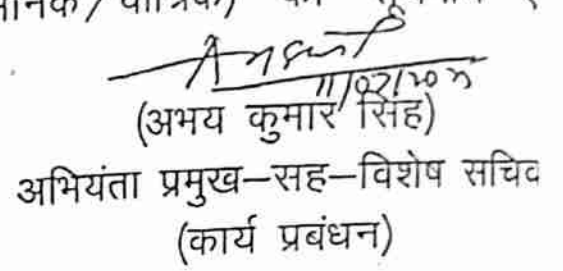 (अभय कुमार सिंह)
अभियंता प्रमुख–सह–विशेष सचिव
(कार्य प्रबंधन)